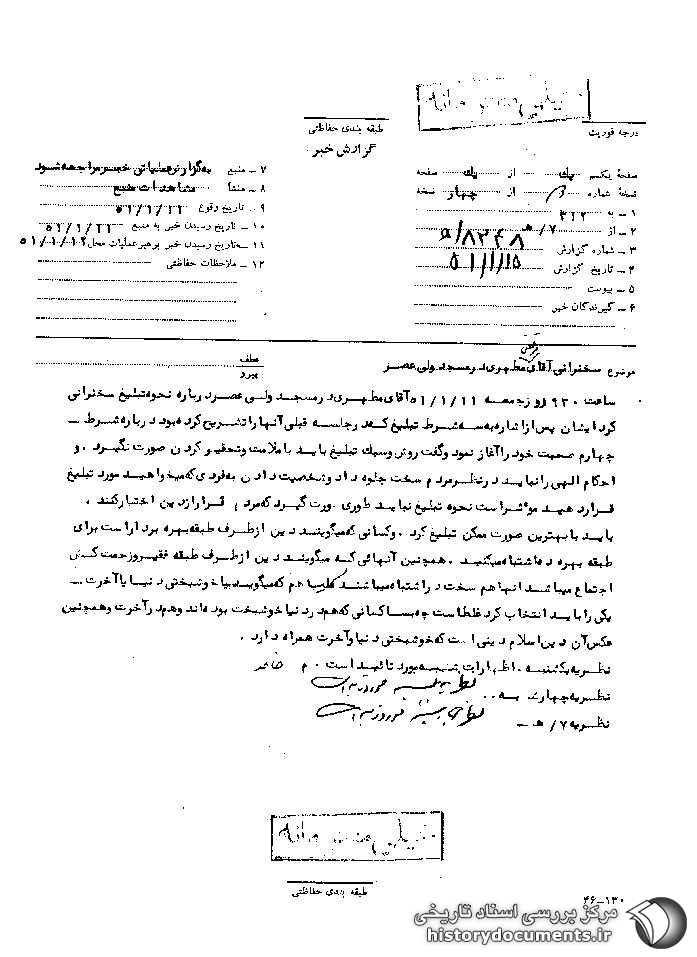 خیلی محرمانه
درجه فوریت
طبقه بندی حفاظتی
گزارش خبر
صفحه یکم یک از یک صفحه
نسخه شماره ۳ از چهار نسخه
۱ – به ۳۱۲
۲ – از ۷/هـ
۳ – شماره گزارش ۵/۸۲۴۸
۴ – تاریخ گزارش ۵۱/۱/۱۵
۵ – پیوست
۶ – گیرندگان خبر
۷ – منبع به گزارش عملیاتی خبر مراجعه شود
۸ – منشأ مشاهدات منبع
۹ – تاریخ وقوع ۵۱/۱/۱۱
۱۰ – تاریخ رسیدن خبر به منبع ۵۱/۱/۱۱
۱۱ – تاریخ رسیدن خبر برهبر عملیات محل ۵۱/۱/۱۲
۱۲ – ملاحظات حفاظتی
موضوع سخنرانی آقای مطهری در مسجد ولی عصر
عطف
پیرو
ساعت ۹۳۰ روز جمعه ۵۱/۱/۱۱ آقای مطهری در مسجد ولی عصر درباره نحوه تبلیغ سخنرانی
کرد ایشان پس از اشاره به سه شرط تبلیغ که در جلسه قبلی آنها را تشریح کرده بود درباره شرط –
چهارم صحبت خود را آغاز نمود و گفت روش و سبک تبلیغ باید با ملامت و تحقیر کردن صورت نگیرد . و
احکام الهی را نباید در نظر مردم سخت جلوه داد و شخصیت دادن به فردی که میخواهید مورد تبلیغ
قرار دهید موثر است نحوه تبلیغ نباید طوری صورت گیرد که مردم فرار از دین اختیار کنند .
باید با بهترین صورت ممکن تبلیغ کرد . و کسانی که میگویند دین از طرف طبقه بهره بردار است برای
طبقه بهره ده اشتباه میکنند . همچنین آنهائی که میگویند دین از طرف طبقه فقیر و زحمت کش
اجتماع میباشد آنها هم سخت در اشتباه میباشند کلیسا هم که میگوید بیا خوشبختی دنیا یا آخرت –
یکی را باید انتخاب کرد غلط است چه بسا کسانی که هم در دنیا خوشبخت بوده اند و هم در آخرت و همچنین
عکس آن دین اسلام دینی است که خوشبختی دنیا و آخرت همراه دارد .
نظریه یکشنبه . اظهارات شنبه مورد تائید است . م
نظریه چهارشنبه ..
نظریه ۷/هـ –
خیلی محرمانه
طبقه بندی حفاظتی
۴۶–۱۳۰
مرکز بررسی اسناد تاریخی
historydocuments.ir